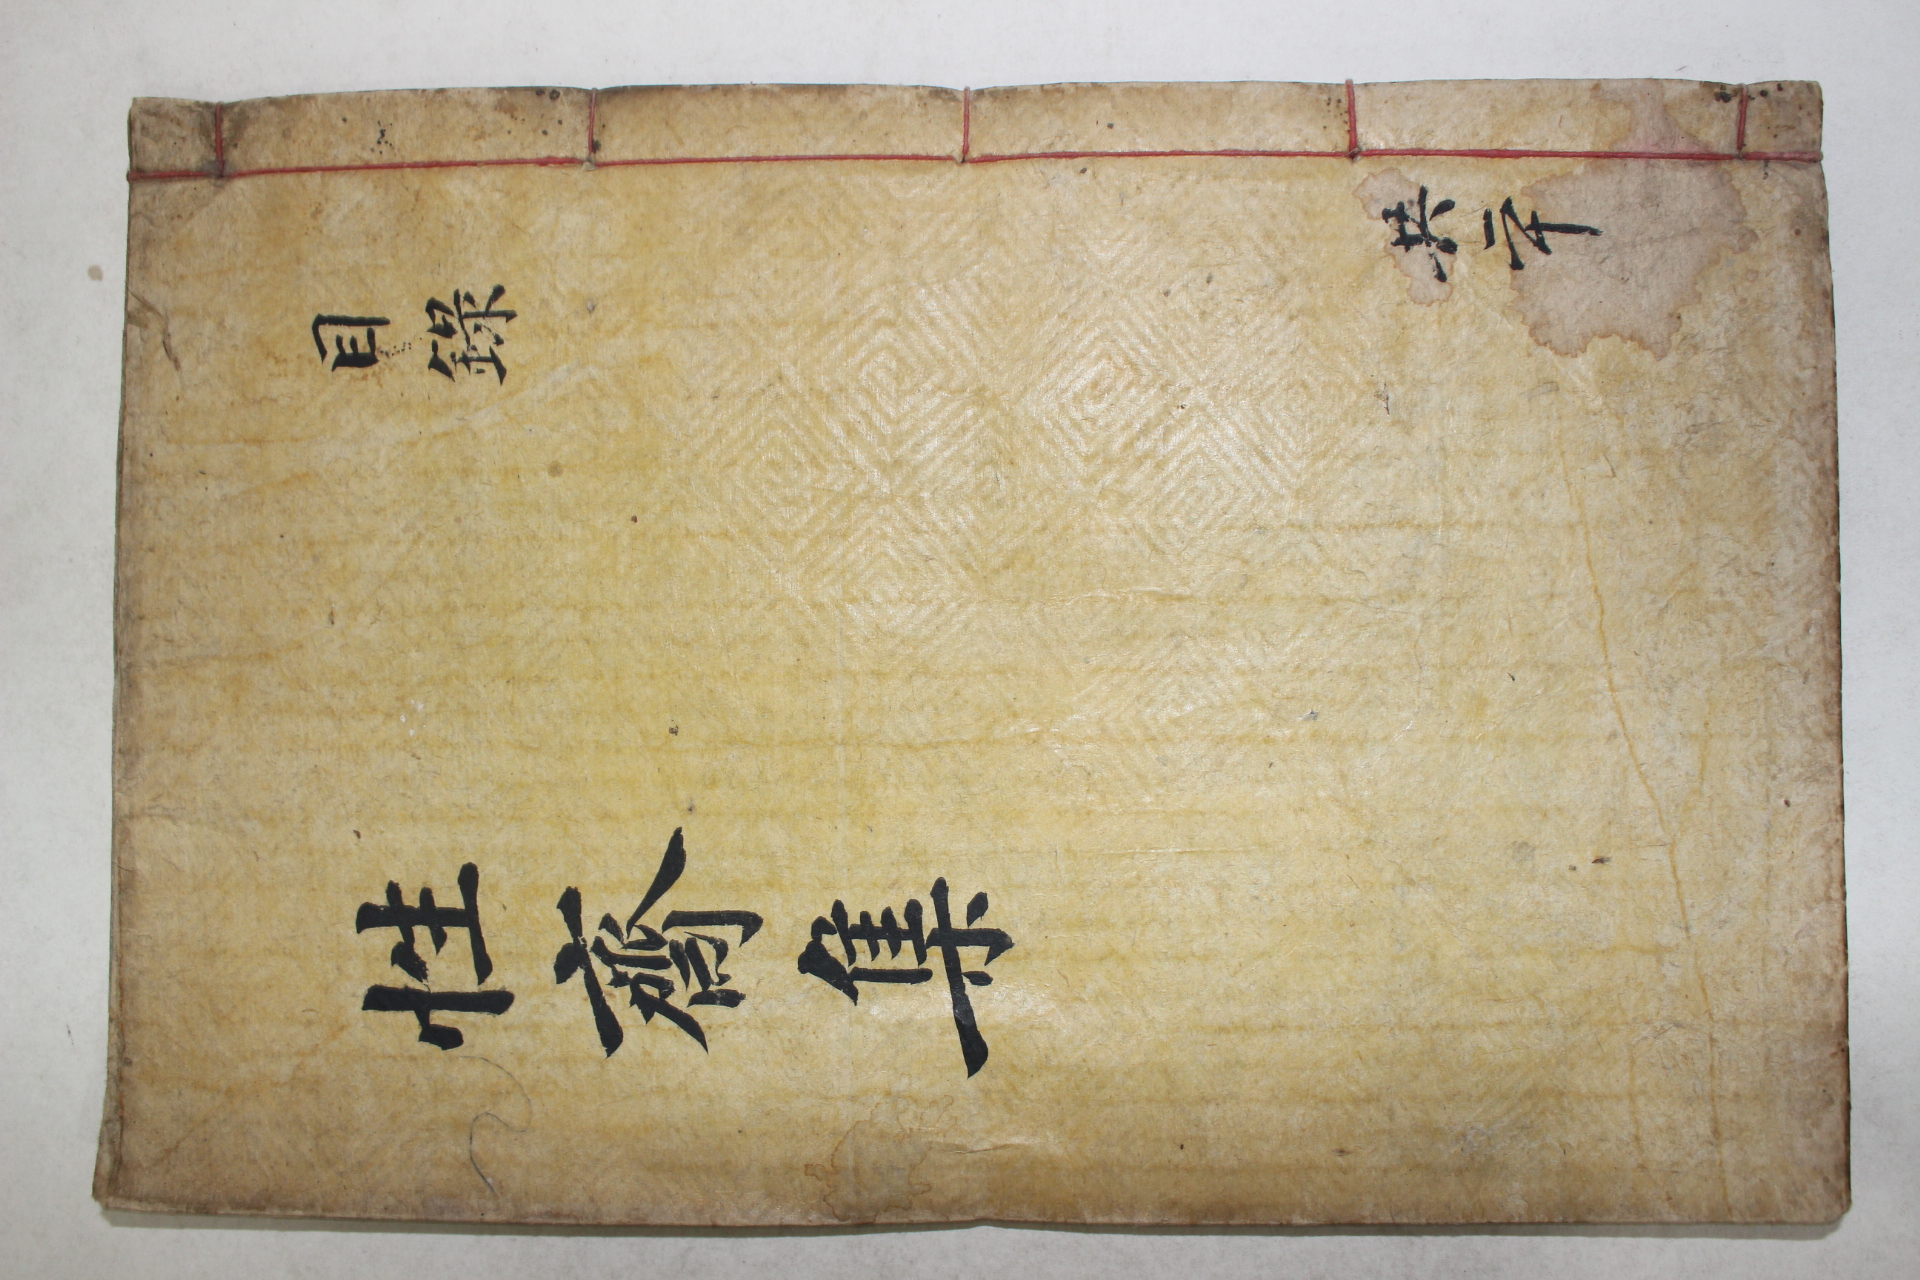 目錄
共二十
性齋集